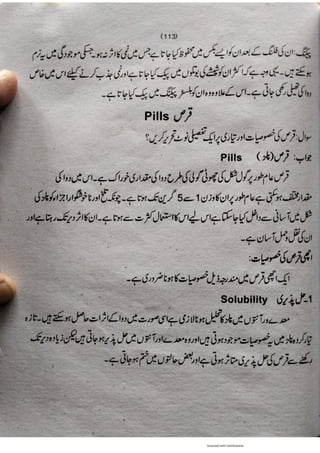 (113)
پیکنگ: ان کی فلنگ کے بعد ان کو ایسے بکس میں محفوظ کیا جاتا ہے جس میں نمی کا اثر نہ ہو۔ جسکی موجودگی میں یہ نرم
ہو سکتے ہیں۔ یہی وجہ ہے کہ اکثر ان کو شیشے کی بوتلوں میں پیک کیا جاتا ہے اور نمی جذب کرنے کیلئے اس میں خاص
دوا کی تھیلی رکھی جاتی ہے۔ اس کے علاوہ وہ ان کو بلسٹر پیکنگ میں پیک کیا جاتا ہے۔
قرص Pills
سوال: قرص کی خصوصیات اور تیاری پر ایک تفصیلی نوٹ تحریر کریں؟
جواب: قرص (پلز) Pills
قرص عام طور پر گول شکل کی چھوٹی گولی کی طرح دوا کی مقداری خوراک ہے۔ اس میں دوا کی
مقدار مختلف ہو سکتی ہے عام طور پر ان کا وزن 1 سے 5 گرین تک ہوتا ہے۔ چونکہ تلخ اور ناخوشگوار اجزاء کو پلز کی
شکل میں آسانی سے داخل کیا جا سکتا ہے اس لیے اس کا استعمال کثرت سے ہوتا ہے۔ ان کا اثر دیر تک رہتا ہے اور
ان کی نقل و حمل آسان ہے۔
اچھی قرص کی خصوصیات:
ایک اچھی قرص میں مندرجہ ذیل خصوصیات کا ہونا ضروری ہے۔
1۔ حل پذیری Solubility
معدے اور آنتوں میں پلز کا تحلیل ہونا لازمی ہے اسی صورت میں دوا کے اثرات حاصل ہو سکتے ہیں۔ تازہ
تیار کردہ پلز میں یہ خصوصیات موجود ہوتی ہیں اور وہ معدے اور آنتوں میں حل پذیر ہو جاتی ہیں لیکن زیادہ دیر تک
رکھنے سے قرص کی حل پذیری متاثر ہوتی ہے اور بعض حالتوں میں ختم ہو جاتی ہے۔
Scanned with CamScanner